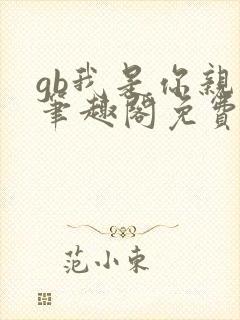 gb我是你親
筆趣閣免費
范小東